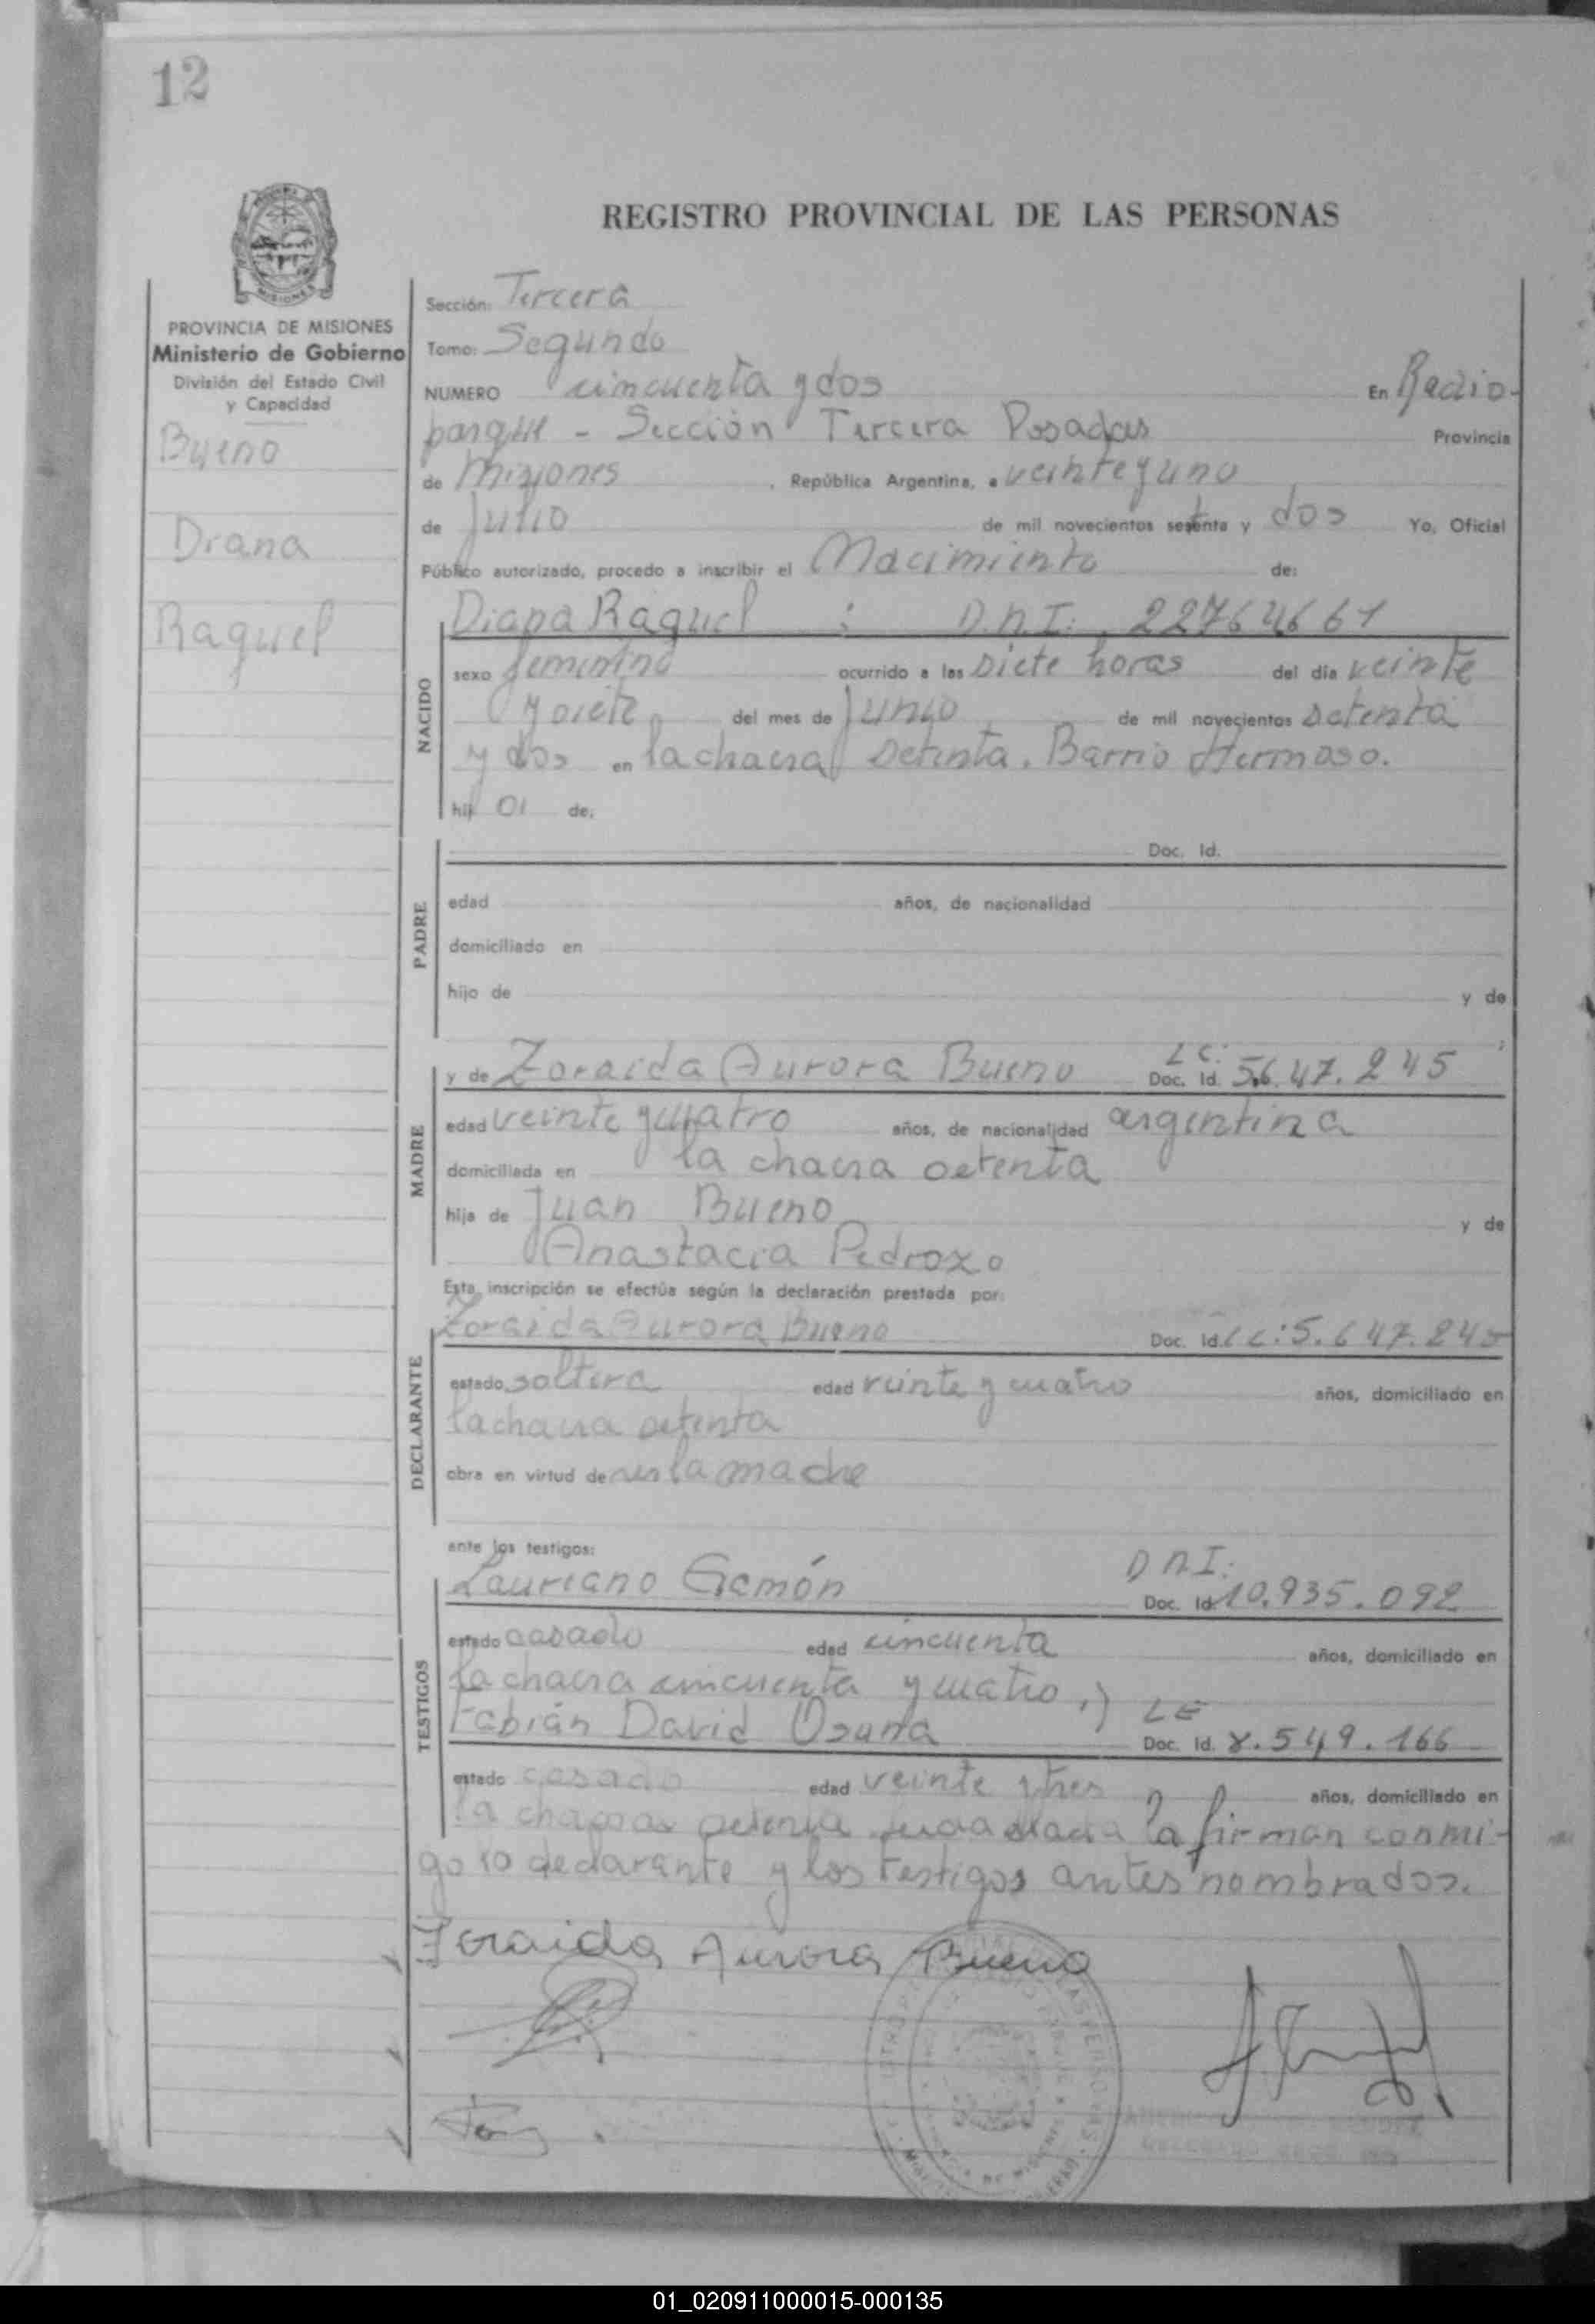 12
REGISTRO PROVINCIAL DE LAS PERSONAS
MISIONES
PROVINCIA DE MISIONES
Ministerio de Gobierno
División del Estado Civil
y Capacidad
Bueno
Diana
Raquel
Sección: Tercera
Tomo: Segundo
NUMERO cincuenta y dos En Radio-
parque - Sección Tercera Posadas Provincia
de Misiones, República Argentina, a veinte y uno
de Julio de mil novecientos setenta y dos Yo, Oficial
Público autorizado, procedo a inscribir el Nacimiento de:
NACIDO
Diana Raquel : D.N.I. 22764661
sexo femenino ocurrido a las siete horas del día veinte
y siete del mes de Junio de mil novecientos setenta
y dos en la chacra setenta. Barrio Hermoso.
hij de:
PADRE
Doc. Id.
edad años, de nacionalidad
domiciliado en
hijo de y de
MADRE
y de Zoraida Aurora Bueno L C: Doc. Id. 5.647.245
edad veinte y cuatro años, de nacionalidad argentina
domiciliada en la chacra setenta
hija de Juan Bueno y de
Anastacia Pedrozo
Esta inscripción se efectúa según la declaración prestada por:
DECLARANTE
Zoraida Aurora Bueno Doc. Id. L C: 5.647.245
estado soltera edad veinte y cuatro años, domiciliado en
la chacra setenta
obra en virtud de ser la madre
ante los testigos:
TESTIGOS
Lauriano Gamón D N I: Doc. Id. 10.935.092
estado casado edad cincuenta años, domiciliado en
la chacra cincuenta y cuatro, y
Fabián David Osuna L E Doc. Id. 8.549.166
estado casado edad veinte y tres años, domiciliado en
la chacra setenta la firman conmi-
go la declarante y los testigos antes nombrados.
Zoraida Aurora Bueno
01_020911000015-000135